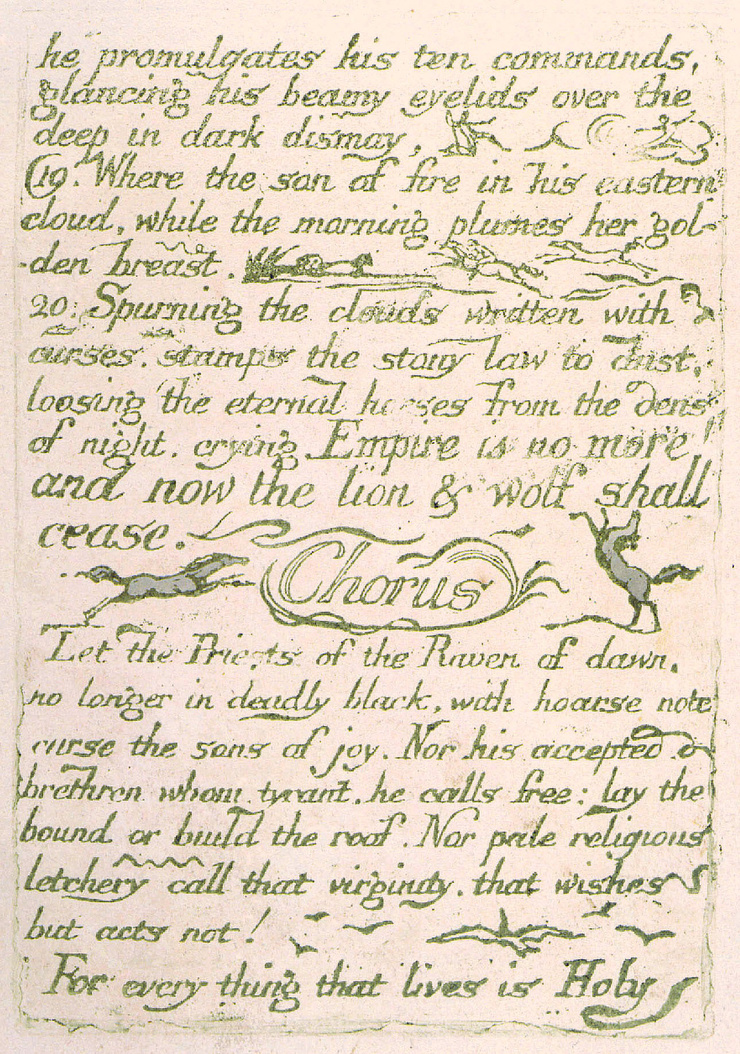 he promulgates his ten commands,
glancing his beamy eyelids over the
deep in dark dismay,
19. Where the son of fire in his eastern
cloud, while the morning plumes her gol-
-den breast.
20. Spurning the clouds written with
curses. stamps the stony law to dust,
loosing the eternal horses from the dens
of night. crying Empire is no more!
and now the lion & wolf shall
cease.
Chorus
Let the Priests of the Raven of dawn,
no longer in deadly black, with hoarse note
curse the sons of joy. Nor his accepted
brethren whom, tyrant, he calls free: lay the
bound or build the roof. Nor pale religious
letchery call that virginity. that wishes
but acts not!
For every thing that lives is Holy